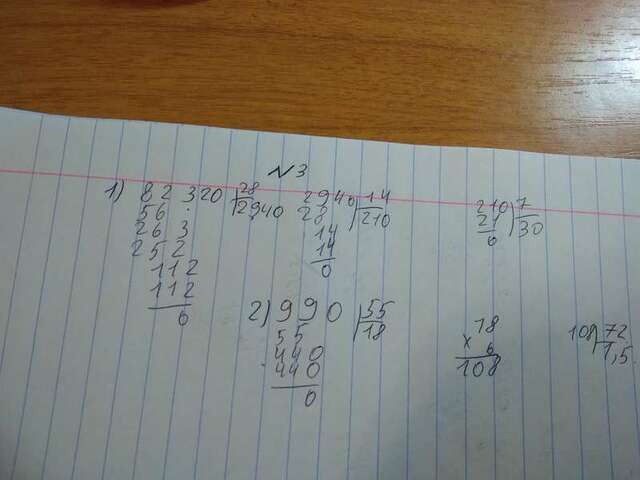 №3
1) 82320 | 28
56 | 2940
263
252
112
112
0
2940 | 14
28 | 210
14
14
0
210 | 7
21 | 30
0
2) 990 | 55
55 | 18
440
440
0
18
× 6
108
108 | 72
1,5